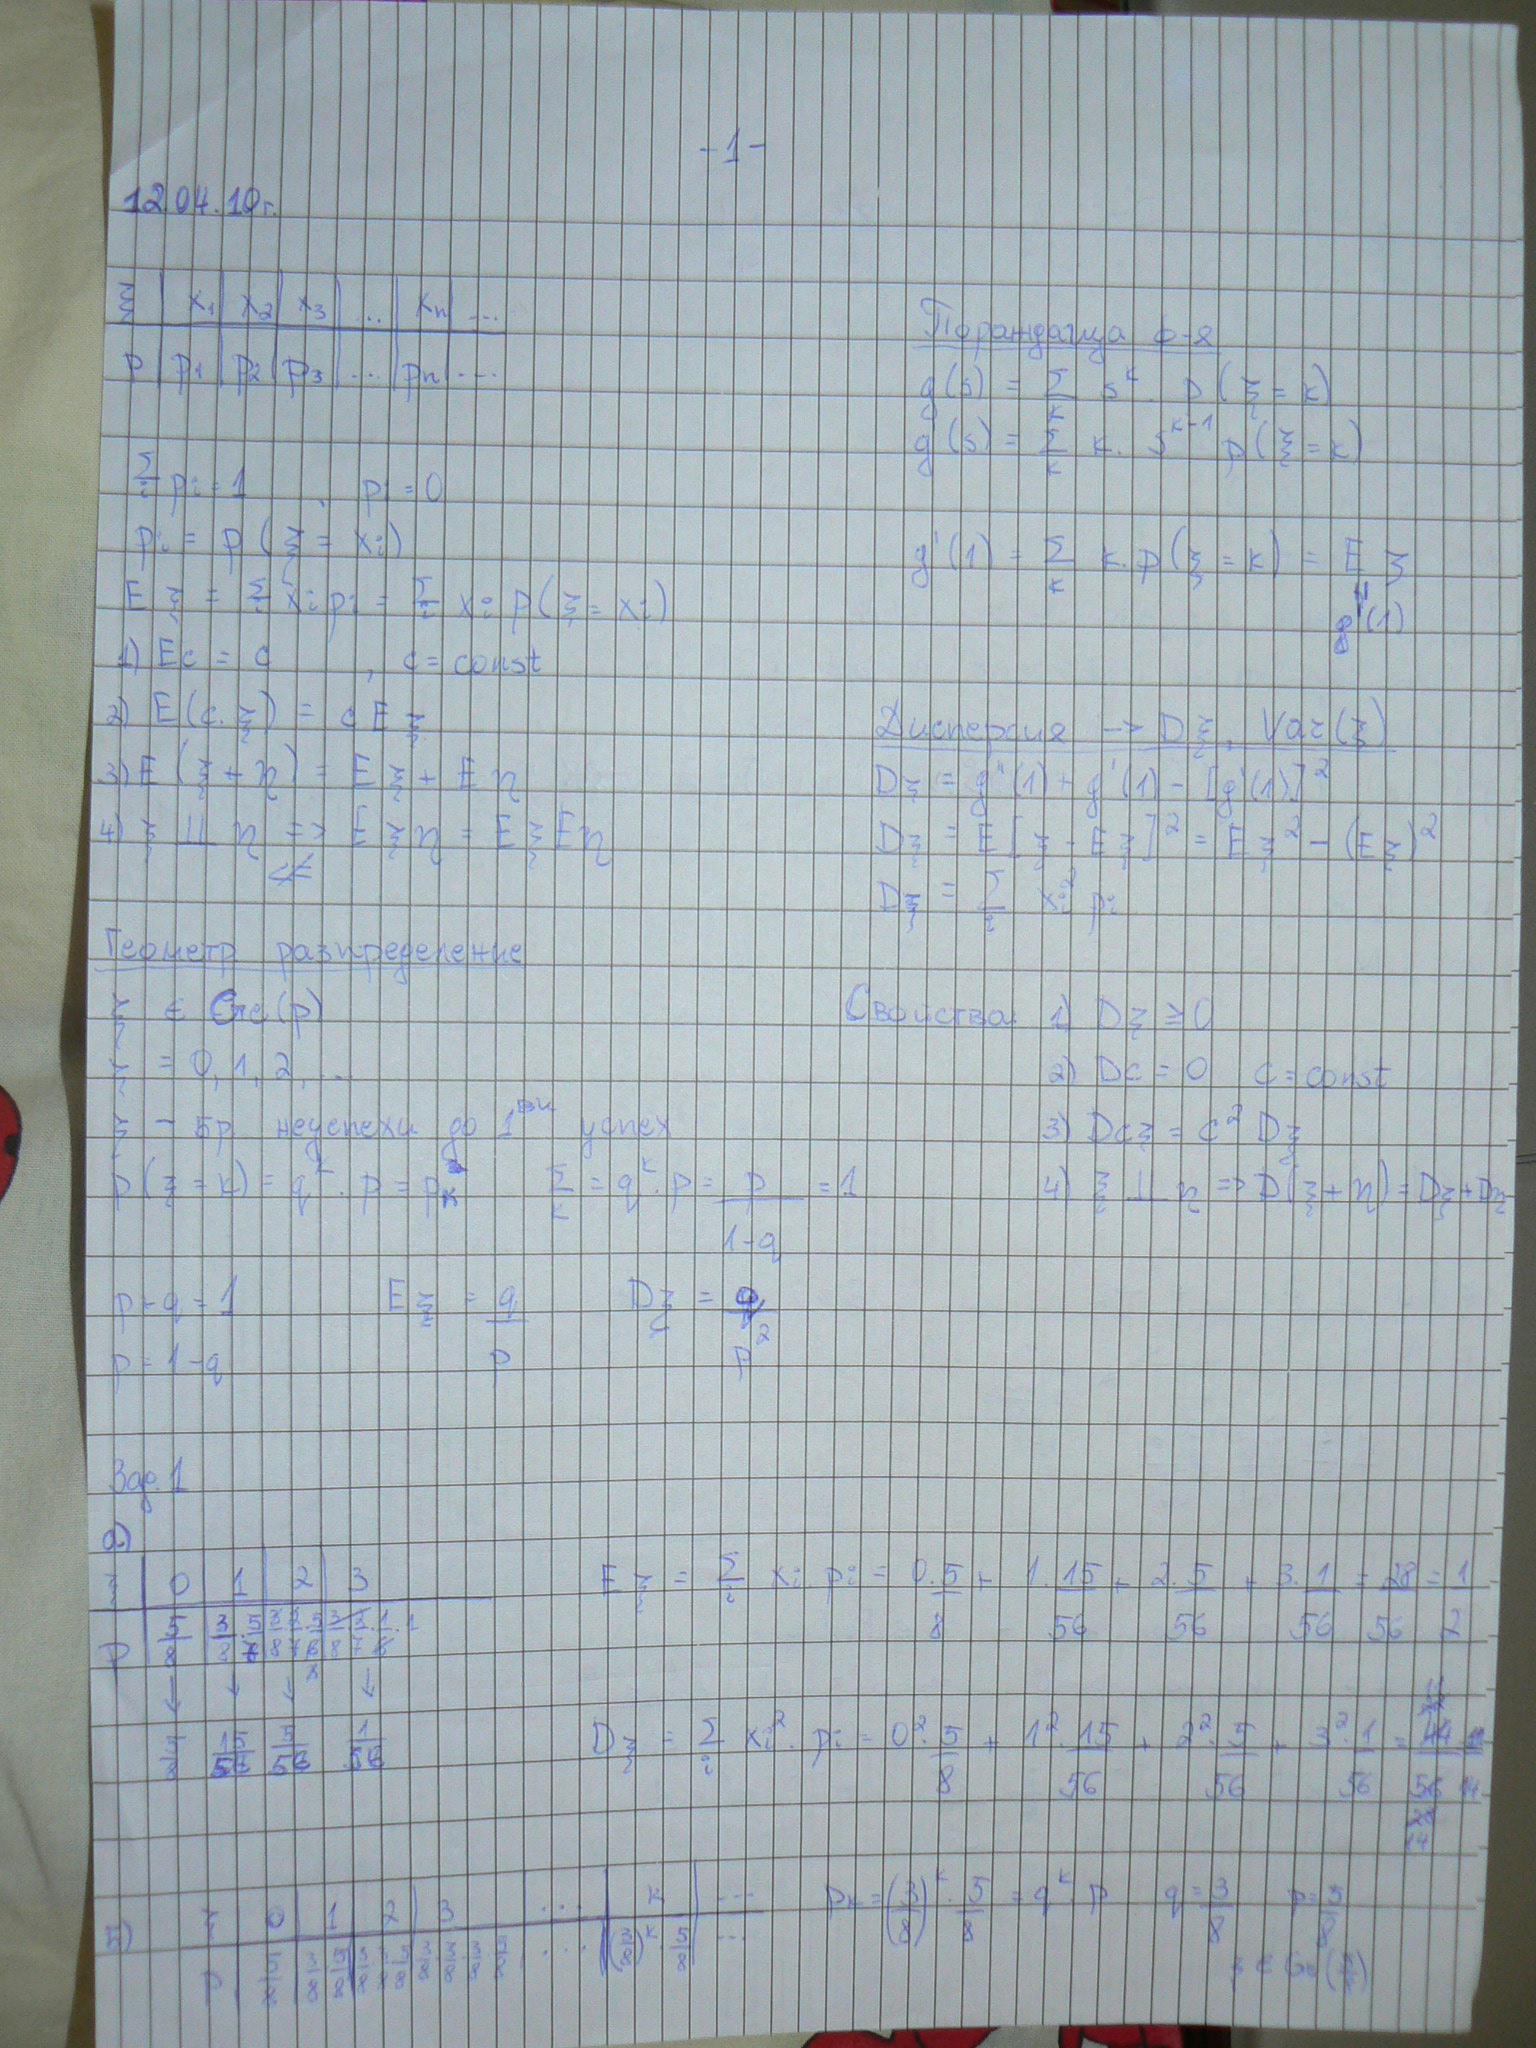 -1-
12.04.10г.
ξ | x1 | x2 | x3 | ... | xn | ...
p | p1 | p2 | p3 | ... | pn | ...
Σi pi = 1 , pi = 0
pi = p(ξ = xi)
Eξ = Σi xi pi = Σi xi p(ξ = xi)
1) Ec = c , c = const
2) E(c.ξ) = cEξ
3) E(ξ + η) = Eξ + Eη
4) ξ ⊥⊥ η => Eξη = EξEη
⇍
Геометр разпределение
ξ ∈ Ge(p)
ξ = 0, 1, 2, ...
ξ - бр неуспехи до 1ви успех
p(ξ = k) = q^k . p = pk Σk = q^k . p = p/(1-q) = 1
p + q = 1 Eξ = q/p Dξ = q/p^2
p = 1 - q
Пораждаща ф-я
g(s) = Σk s^k . p(ξ = k)
g'(s) = Σk k . s^(k-1) p(ξ = k)
g'(1) = Σk k.p(ξ = k) = Eξ
g'(1)
Дисперсия -> Dξ, Var(ξ)
Dξ = g''(1) + g'(1) - [g'(1)]^2
Dξ = E[ξ - Eξ]^2 = Eξ^2 - (Eξ)^2
Dξ = Σi xi^2 pi
Свойства 1) Dξ ≥ 0
2) Dc = 0 c = const
3) Dcξ = c^2 Dξ
4) ξ ⊥⊥ η => D(ξ + η) = Dξ + Dη
Зад. 1
а)
ξ | 0 | 1 | 2 | 3
p | 5/8 | 3/8 . 5/7 | 3/8 . 2/7 . 5/6 | 3/8 . 2/7 . 1/6 . 1
↓ ↓ ↓ ↓
5/8 15/56 5/56 1/56
Eξ = Σi xi . pi = 0.5/8 + 1.15/56 + 2.5/56 + 3.1/56 = 28/56 = 1/2
Dξ = Σi xi^2 . pi = 0^2.5/8 + 1^2.15/56 + 2^2.5/56 + 3^2.1/56 =
б)
ξ | 0 | 1 | 2 | 3 | ... | k | ...
p | 5/8 | 3/8 . 5/8 | 3/8 . 3/8 . 5/8 | 3/8 . 3/8 . 3/8 . 5/8 | ... | (3/8)^k . 5/8 | ...
pk = (3/8)^k . 5/8 = q^k . p q = 3/8 p = 5/8
ξ ∈ Ge(5/8)